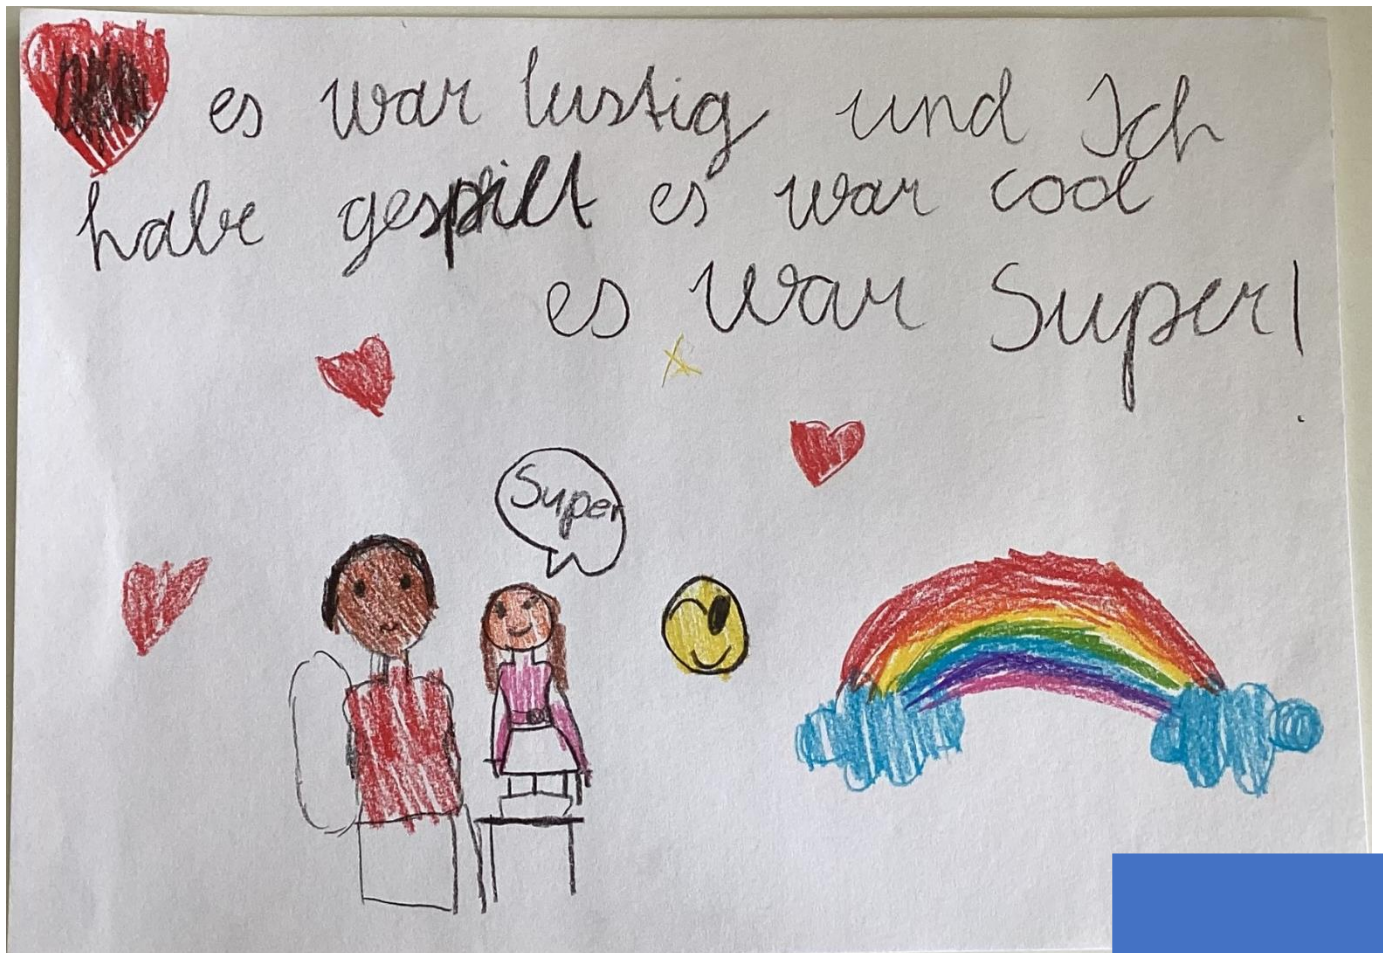 es war lustig und Ich
habe gespilt es war cool
es war Super!
Super